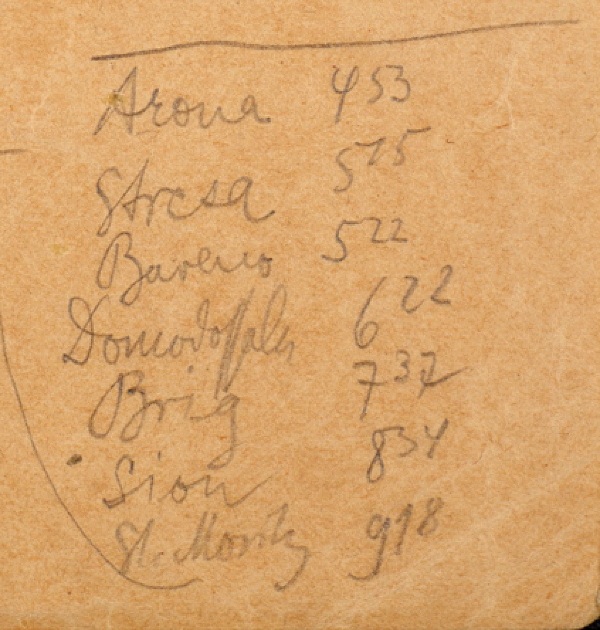 Arona 4 53
Stresa 5 15
Baveno 5 22
Domodossola 6 22
Brig 7 37
Sion 8 34
St. Moritz 9 18